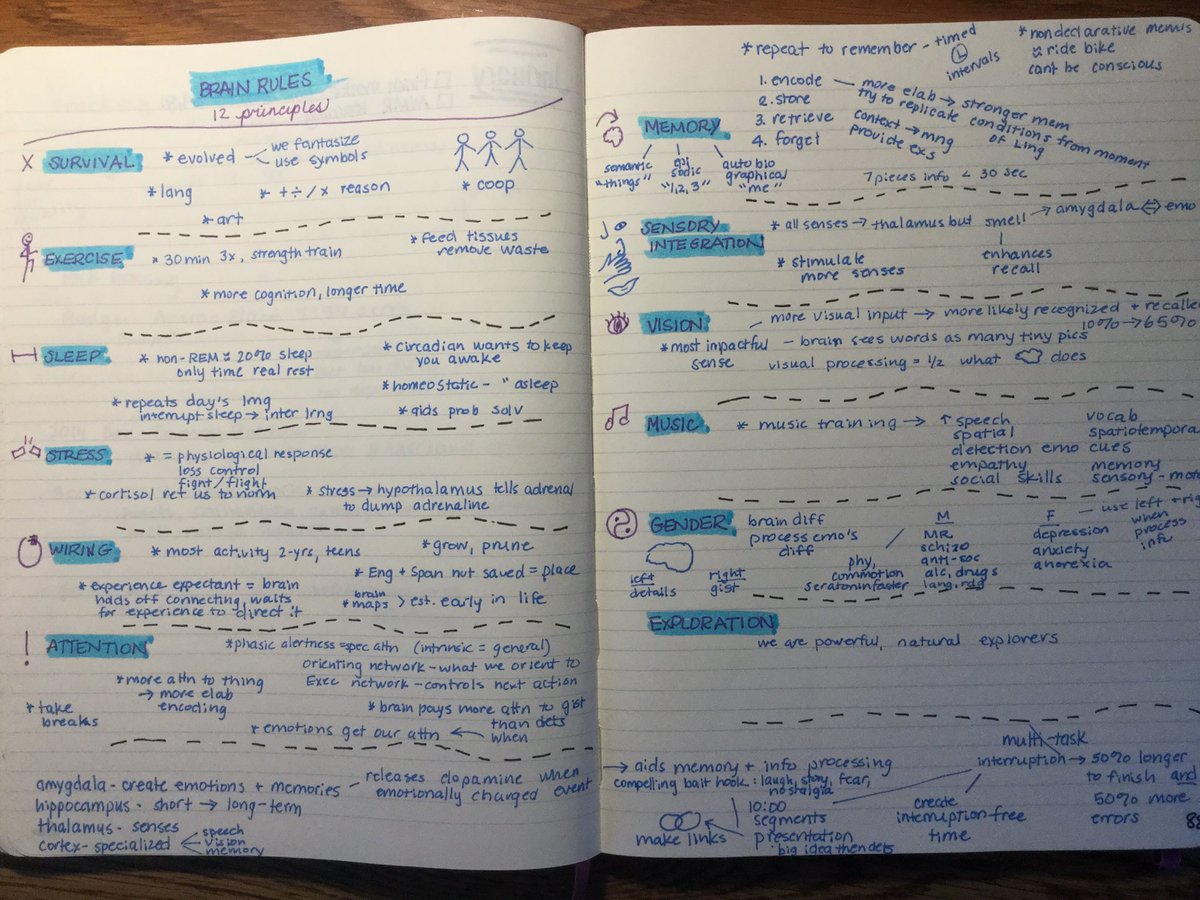 BRAIN RULES
12 principles
X SURVIVAL
* evolved
we fantasize
use symbols
* lang
* + ÷ / x reason
* coop
* art
EXERCISE
* 30 min 3x, strength train
* feed tissues
remove waste
* more cognition, longer time
SLEEP
* non-REM ≈ 20% sleep
only time real rest
* circadian wants to keep
you awake
* homeostatic - " asleep
* repeats day's lrng
interrupt sleep → inter lrng
* aids prob solv
STRESS
* = physiological response
loss control
fight/flight
* cortisol ret us to norm
* stress → hypothalamus tells adrenal
to dump adrenaline
WIRING
* most activity 2-yrs, teens
* grow, prune
* experience expectant = brain
holds off connecting, waits
for experience to direct it
* Eng + Span not saved = place
* brain
maps > est. early in life
! ATTENTION
* phasic alertness = spec attn (intrinsic = general)
orienting network - what we orient to
Exec network - controls next action
* more attn to thing
→ more elab
encoding
* take
breaks
* brain pays more attn to gist
than dets
* emotions get our attn ← when
amygdala - create emotions + memories
releases dopamine when
emotionally charged event
hippocampus - short → long-term
thalamus - senses
cortex - specialized
speech
vision
memory
* repeat to remember - timed
intervals
* nondeclarative mems
≈ ride bike
cant be conscious
MEMORY
1. encode
2. store
3. retrieve
4. forget
more elab → stronger mem
try to replicate conditions from moment
of lrng
context → mng
provide exs
semantic
"things"
epi
sodic
"1,2,3"
auto bio
graphical
"me"
7 pieces info < 30 sec
SENSORY
INTEGRATION
* all senses → thalamus but smell → amygdala ⇔ emo
enhances
recall
* stimulate
more senses
VISION
more visual input → more likely recognized + recalled
10% → 65%
* most impactful
sense
- brain sees words as many tiny pics
visual processing = 1/2 what does
MUSIC
* music training → ↑ speech
spatial
detection emo cues
empathy
social skills
vocab
spatiotempora
memory
sensory-mot
GENDER
brain diff
process emo's
diff
left
details
right
gist
phy,
commotion
seratonin faster
M
MR
schizo
anti-soc
alc, drugs
lang, rdg
F
depression
anxiety
anorexia
- use left + rig
when
process
info
EXPLORATION
we are powerful, natural explorers
→ aids memory + info processing
compelling bait hook: laugh, story, fear,
nostalgia
make links
10:00
segments
presentation
big idea then dets
multi-task
interruption → 50% longer
to finish and
50% more
errors
create
interruption-free
time